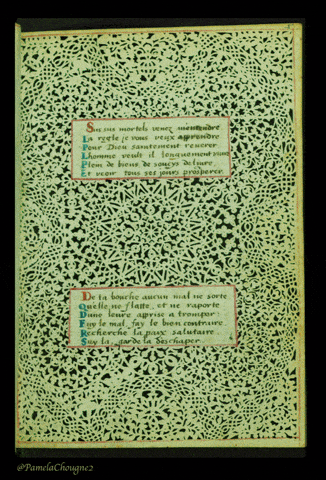 Sus sus mortels venez
La regle je vous veux apprendre
Pour Dieu saintement reverer
Lhomme veult il longuement vivre
Plein de biens de soucys delivre
Et veoir tous ses jours prosperer
De ta bouche aucun mal ne sorte
Quelle ne flatte et ne raporte
Dune leure apprise a tromper:
Fuy le mal, fay le bien contraire
Recherche la paix salutaire
Suy la, garde la
@PamelaChougne2